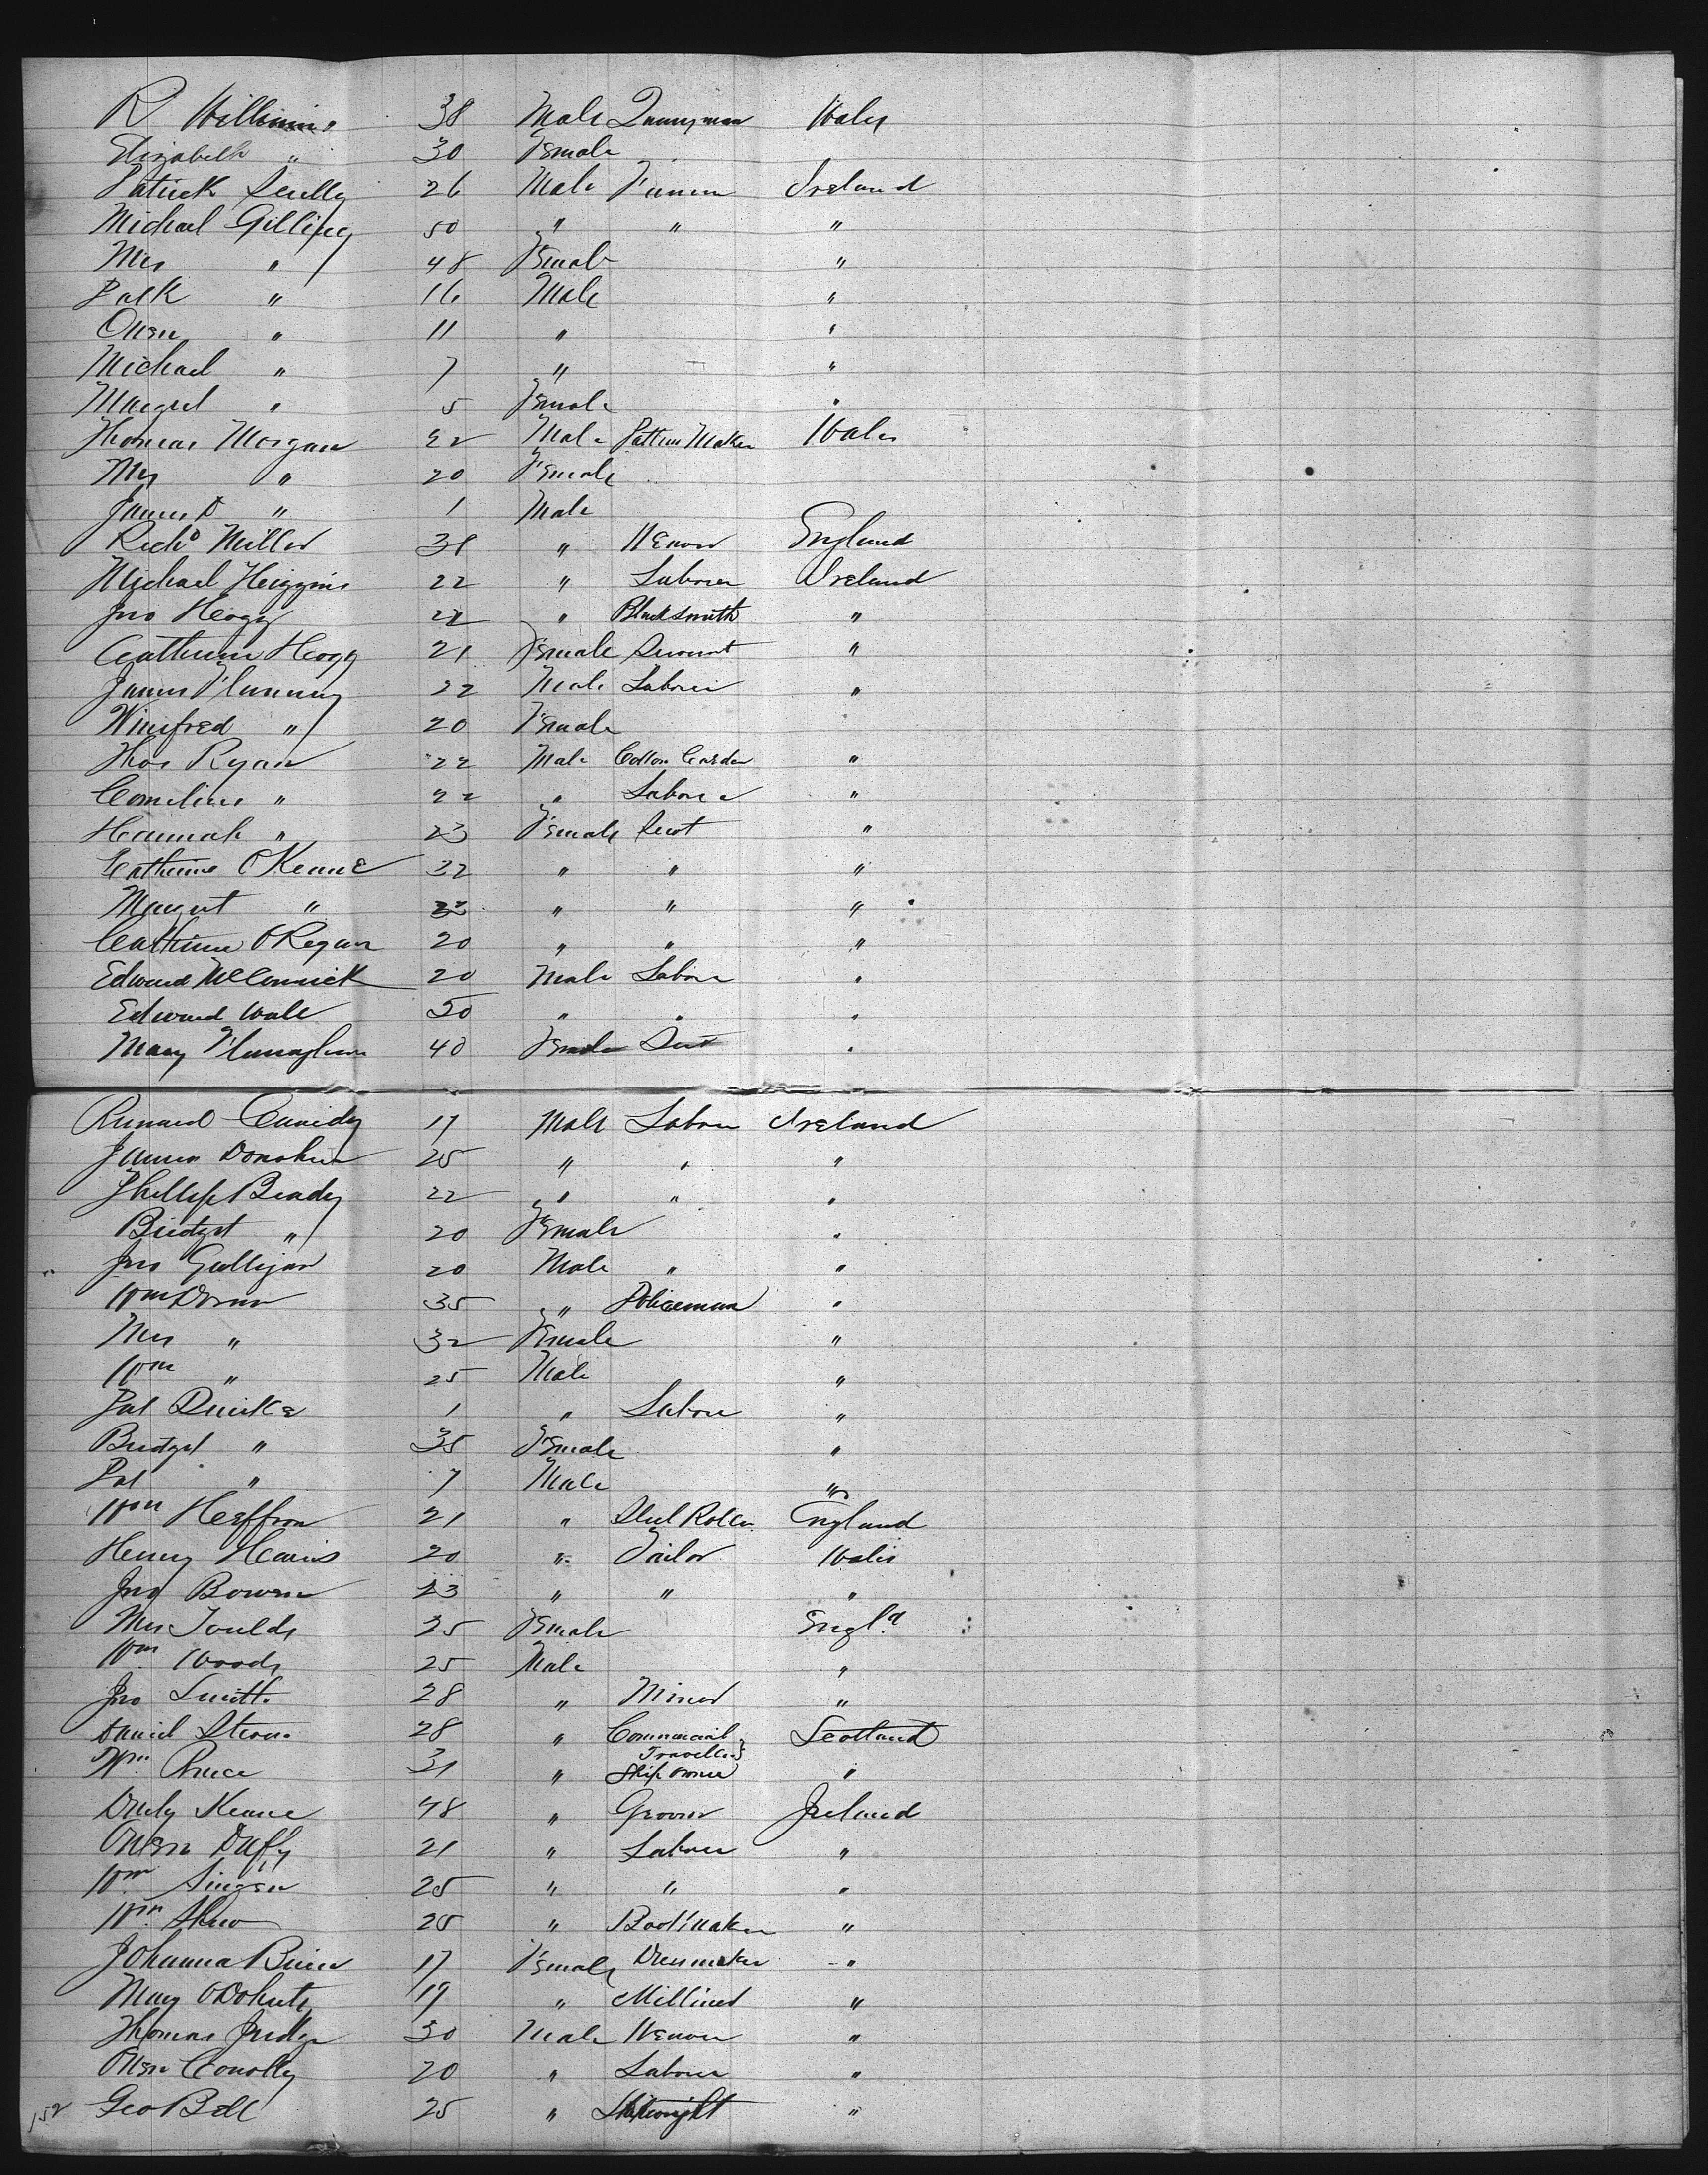 R Williams 38 Male Quarryman Wales
Elizabeth " 30 Female
Patrick Scully 26 Male Farmer Ireland
Michael Gilling 50 " " "
Mrs " 48 Female "
Patk " 16 Male "
Owen " 11 " "
Michael " 7 " "
Margret " 5 Female "
Thomas Morgan 22 Male Pattern Maker Wales
Mrs " 20 Female
James D " 1 Male
Richd Miller 38 " Weaver England
Michael Higgins 22 " Laborer Ireland
Jno Hogg 22 " Blacksmith "
Catherine Hogg 21 Female Servant "
James Flannery 22 Male Laborer "
Winifred " 20 Female "
Thos Ryan 22 Male Cotton Carder "
Cornelius " 22 " Laborer "
Hannah " 23 Female Servt "
Catherine OKeane 32 " " "
Margret " " " "
Catherine ORegan 20 " " "
Edward McCormick 20 Male Labore "
Edward Wall 50 " " "
Mary 40 Female Servt "
Cassidy 17 Male Labore Ireland
James Donohue 25 " " "
Phillip Brady 22 " " "
Bridget " 20 Female "
Jno Gulligan 20 Male " "
Wm Doran 35 " Policeman "
Mrs " 32 Female "
Wm " 25 Male "
Pat Quirke 1 " Labore "
Bridget " 35 Female "
Pat " 7 Male "
Wm Heffron 21 " Steel Roller England
Henry Harris 20 " Tailor Wales
Jno Bowen 23 " " "
Mrs Foulds 25 Female Engld
Wm Woods 25 Male "
Jno Smith 28 " Miner "
Daniel 28 " Commercial Scotland
Traveller
Wm Bruce 31 " Ship owner "
Keane 48 " Groom Ireland
Owen Duffy 21 " Laborer "
Wm 25 " " "
Wm Shaw 25 " Bootmaker "
Johanna 17 Female Dressmaker "
Mary ODoherty 19 " Milliner "
Thomas Judge 30 Male Weaver "
Owen Conolly 20 " Laborer "
152 Geo Bell 25 " Shipwright "